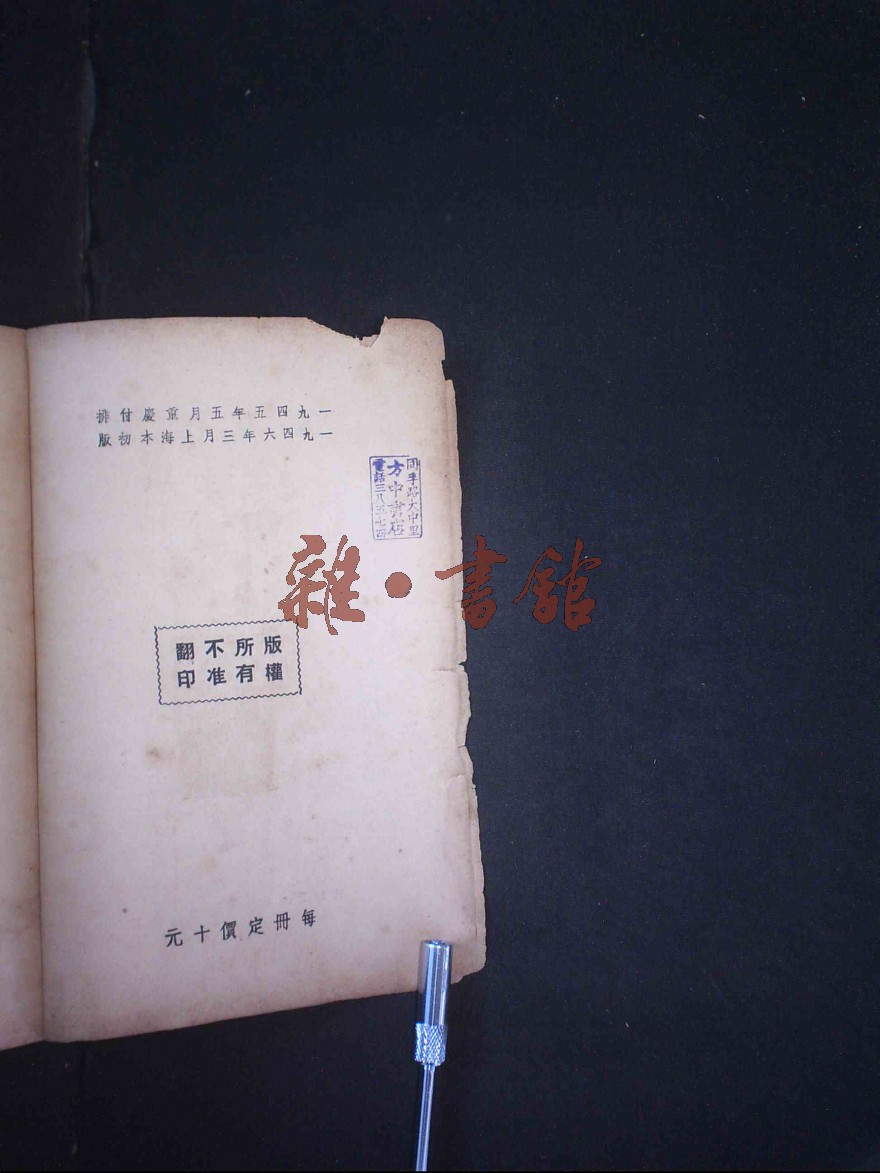 一九四五年五月重慶付排
一九四六年三月上海本初版
同孚路大中里
方中書店
電話三八五七四
雜·書館
版所不翻
權有准印
每冊定價十元